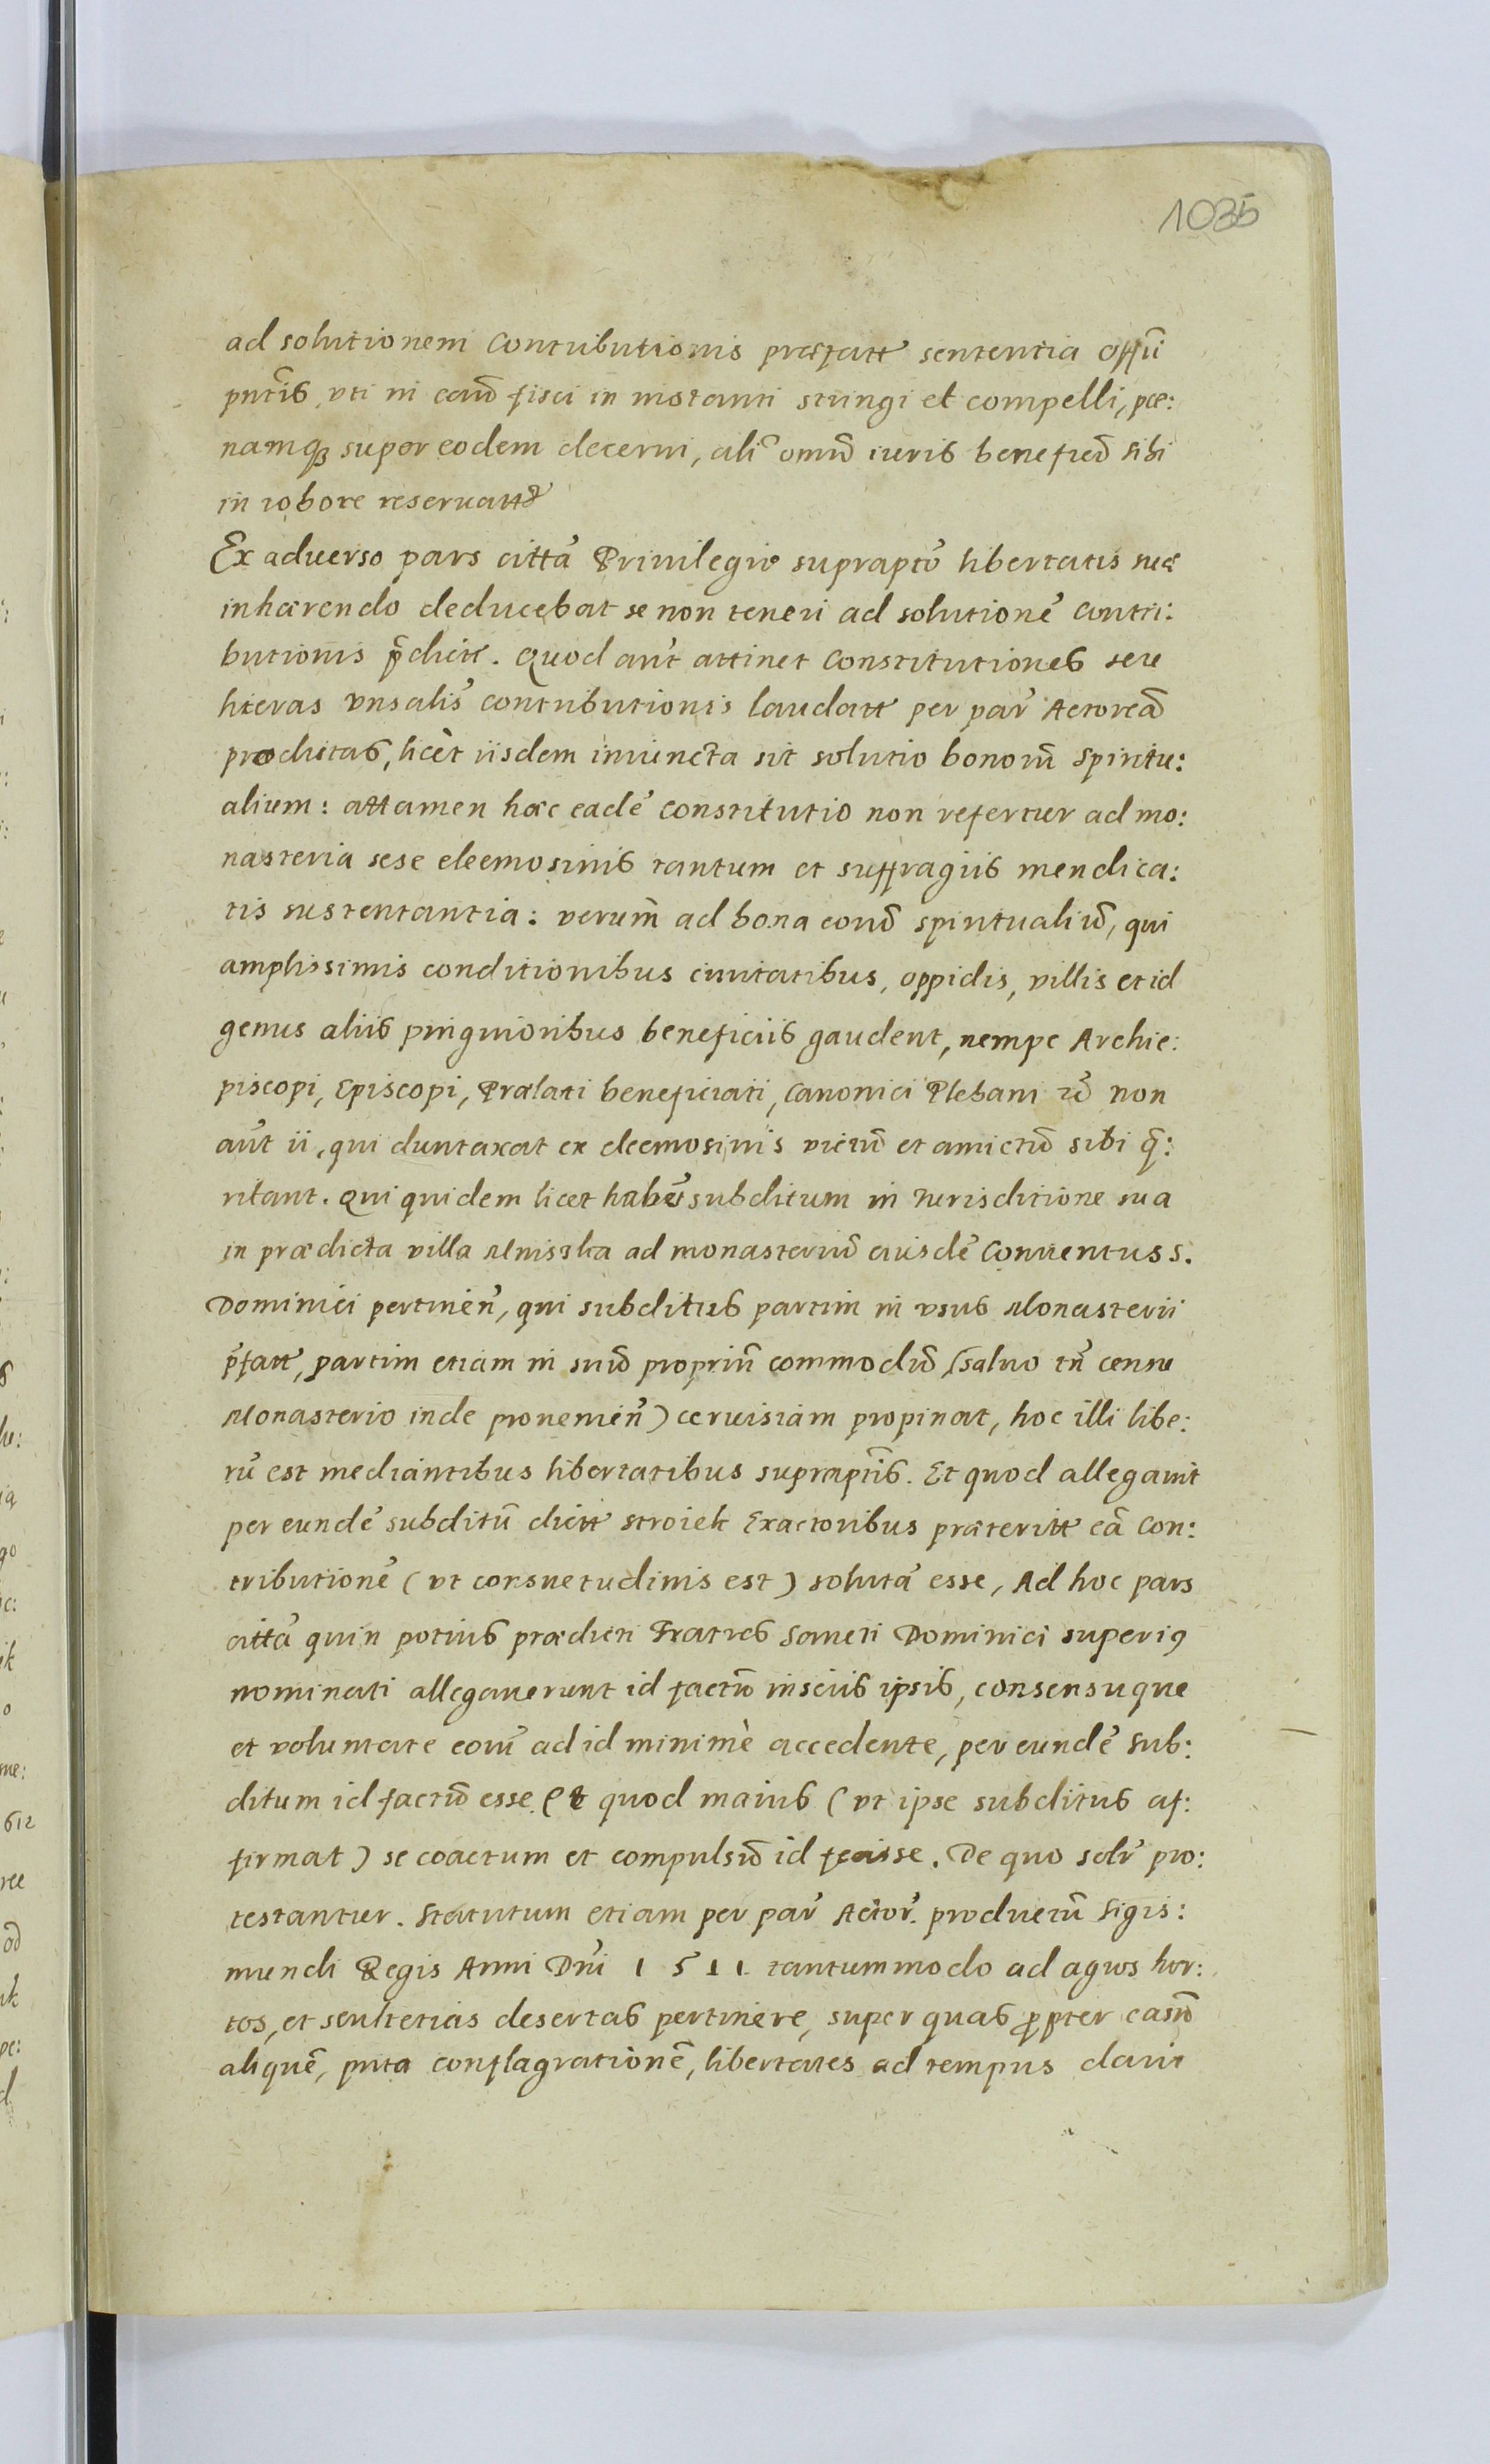 1035
ad solutionem contributionis præfatt sententia offii
pntis, vti in caũ fisci in instanti stringi et compelli, pæ:
namqꝫ super eodem decerni, ali omũ iuris benefiũ sibi
in robore reseruatt
Ex aduerso pars citta Priuilegio suprapto libertatis suæ
inhærendo deducebat se non teneri ad solutionẽ contri:
butionis p̃dictt. Quod aut̃ attinet Constitutiones seu
literas vnsalis contributionis laudatt per par Actoreã
productas, licèt iisdem iniuncta sit solutio bonorũ spiritu:
alium: attamen hæc eadẽ constitutio non refertur ad mo:
nasteria sese eleemosinis tantum et suffragiis mendica:
tis sustentantia: verum̃ ad bona eorũ spiritualiũ, qui
amplissimis conditionibus ciuitatibus, oppidis, villis et id
genus aliis pinguioribus beneficiis gaudent, nempe Archie:
piscopi, Episcopi, Prælati beneficiati, Canonici Plebani et̃ non
aut̃ ii, qui duntaxat ex eleemosinis victũ et amictũ sibi q̃:
ritant. Qui quidem licet habẽt subditum in Iurisditione sua
in prædicta villa Mniszka ad monasteriũ eiusdẽ Conuentus S.
Dominici pertineñ, qui subditus partim in vsus Monasterii
p̃fatt, partim etiam in suũ propriũ commodũ (saluo tñ censu
Monasterio inde proueniẽn) ceruisiam propinat, hoc illi libe:
rũ est mediantibus libertatibus supraptis. Et quod allegauit
per eundẽ subditũ dictt Stroiek Exactoribus præteritt eã con:
tributionẽ (vt consuetudinis est) solutã esse, Ad hoc pars
citta quin potius prædicti Fratres Sancti Dominici superiꝯ
nominati allegauerunt id factũ insciis ipsis, consensuque
et voluntate eorũ ad id minimè accedente, per eundẽ sub:
ditum id factũ esse. Et quod maius (vt ipse subditus af:
firmat) se coactum et compulsũ id fecisse. De quo solr̃ pro:
testantur. Statutum etiam per par Actor. productũ Sigis:
mundi Regis Anni Dñi 1511 tantummodo ad agros hor:
tos, et scultetias desertas pertinere, super quas propter casũ
aliquẽ, puta conflagrationẽ, libertates ad tempus dari